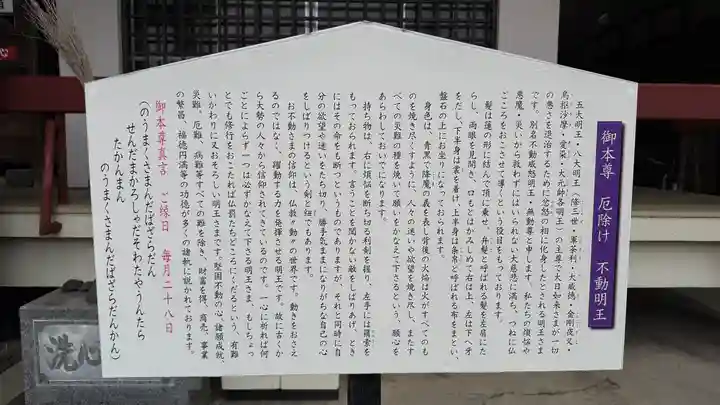 御本尊 厄除け 不動明王
五大明王・八大明王(降三世・軍荼利・大威徳・金剛夜叉・
烏枢沙摩・愛染・大元帥各明王)の主尊で大日如来さまが一切
の悪さを退治するために忿怒の相に化身したとされる明王さま
です。別名不動威怒明王・無動尊と申します。私たちの煩悩や
悪魔・災いから救わずにはいられない大慈悲に満ち、つねに仏
こころをおこさせて導くという役目をもっております。
髪は蓮の形に結んで頂に乗せ、弁髪と呼ばれる髪を左肩にた
らし、両眼を見開き、口もとはかみしめて右は上、左は下へ牙
をだし、下半身は裳を着け、上半身は条帛と呼ばれる布をまとい、
盤石の上にお坐りになっておられます。
身色は、青黒で降魔の義を表し、背後の火焔は火がすべてのも
のを焼き尽くすように、人々の迷いや欲望を焼き尽し、またす
べての災難の種を焼いて願いをかなえて下さるという、願心を
あらわしておいでになります。
持ち物は、右に煩悩を断ち切る利剣を握り、左手には羂索を
もっておられます。言うことを聞かない敵をしばりあげ、とき
にはその命をも断つというものでありますが、それと同時に自
分の欲望や迷いをたち切り、勝手気ままになりがちな自己の心
をしばりつけるという剣と紐でもあるです。
お不動さまの信仰は、仏教〝動〟の世界です。動きをおさえ
るのではなく、躍動する力を発揮させる明王です。故に古くか
ら大勢の人々から信仰されてきているのです。一心に祈れば何
ごとによらず一つは必ずかなえて下さる明王さま、もしちょっ
とでも修行をおこたれば仏罰たちどころにくだるという、有難
いかわりに又おそろしい明王さまです。堅固不動の心、諸願成就、
災難、厄難、病難等すべての難を除き、財富を得、商売、事業
の繁昌、福徳円満等の功徳が多くの諸軌に説かれております。
御本尊真言 ご縁日 毎月二十八日
(のうまくさまんだばざらだん
せんだまかろしゃだそわたやうんたら
たかんまん
のうまくさまんだばざらだんかん)
洗心
心